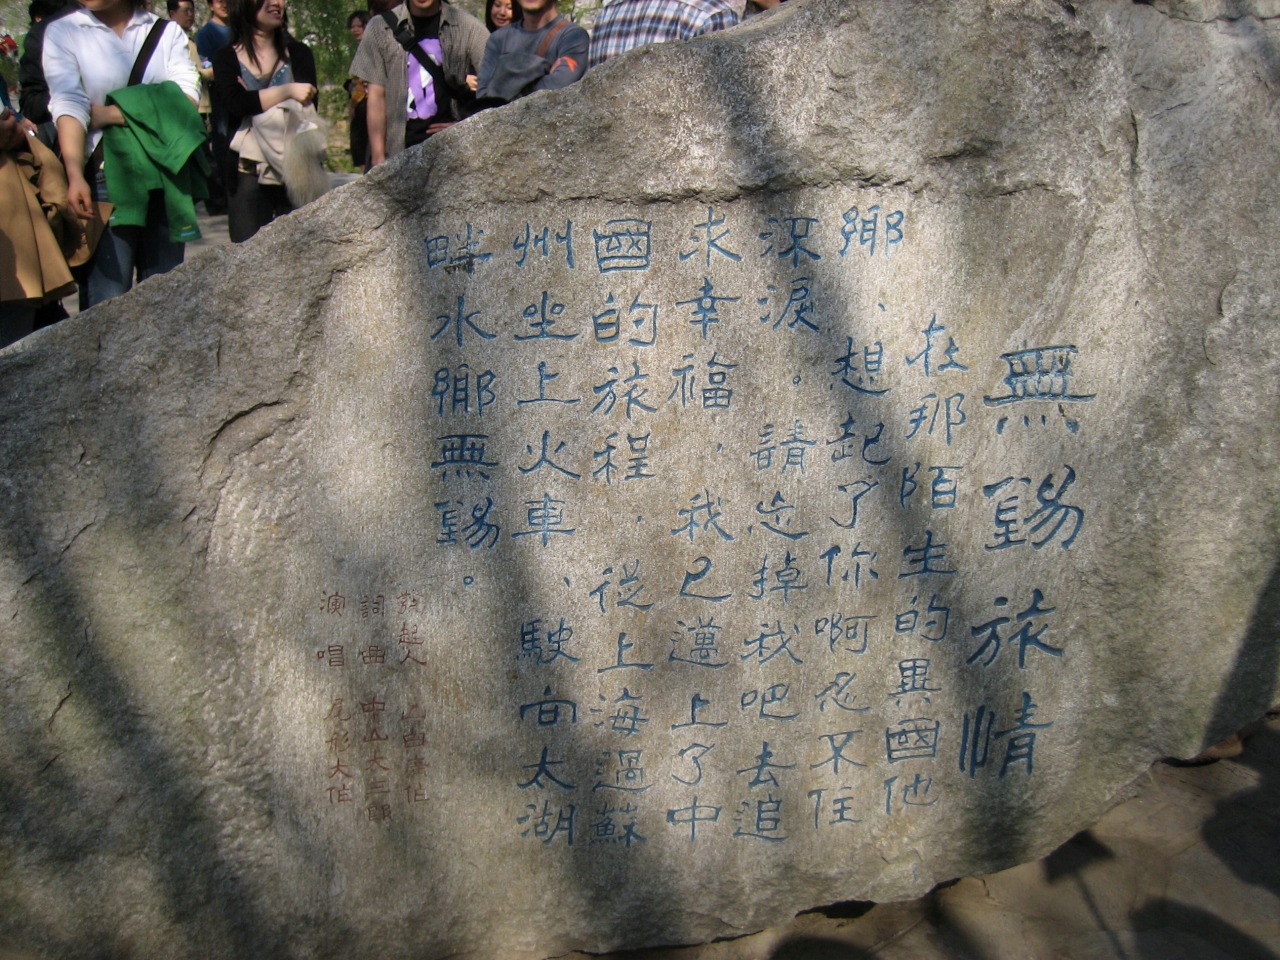 無錫旅情
在那陌生的異國他
鄉、想起了你啊忍不住
深淚。請忘掉我吧去追
求幸福，我已邁上了中
國的旅程，從上海過蘇
州坐上火車、駛向太湖
畔水鄉無錫。
發起人
詞曲 中山大三郎
演唱 尾形大作